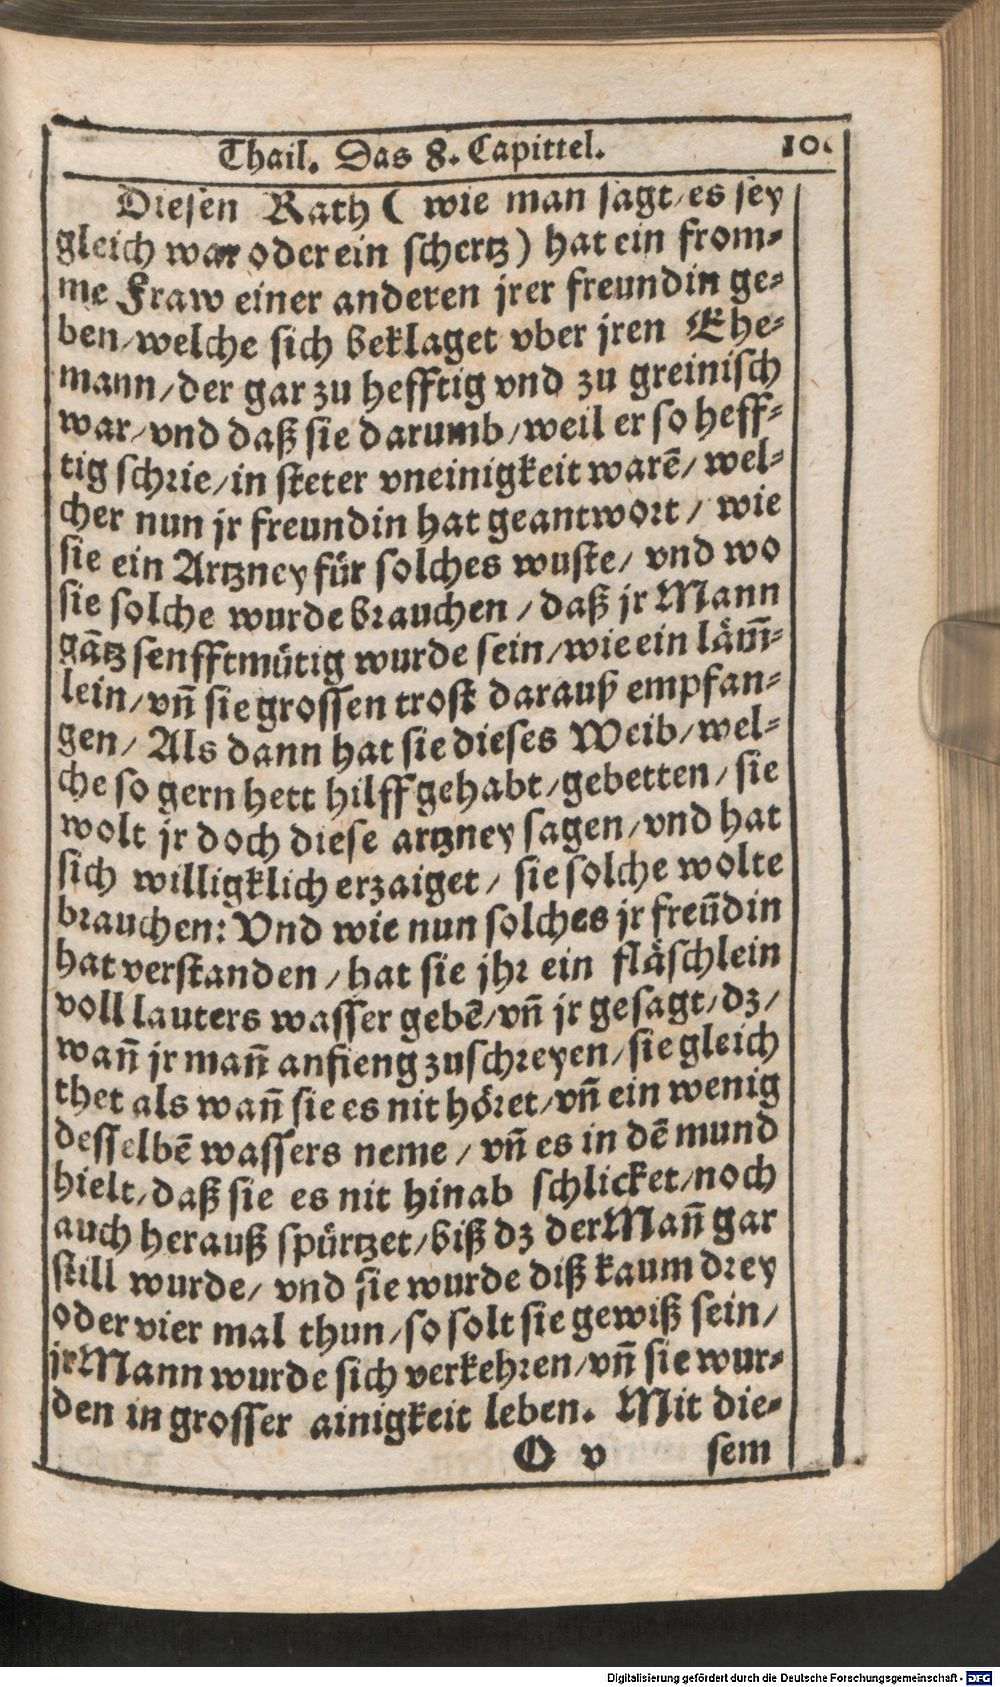 Thail. Das 8. Capittel. 10
Diesen Rath ( wie man sagt/es sey
gleich war oder ein schertz) hat ein from⸗
me Fraw einer anderen jrer freundin ge⸗
ben/welche sich beklaget vber jren Ehe⸗
mann/der gar zu hefftig vnd zu greinisch
war/vnd daß sie darumb/weil er so heff⸗
tig schrie/in steter vneinigkeit warẽ/wel⸗
cher nun jr freundin hat geantwort/ wie
sie ein Artzney für solches wuste/ vnd wo
sie solche wurde brauchen/daß jr Mann
gãtz senfftmütig wurde sein/wie ein läm̃⸗
lein/vñ sie grossen trost darauß empfan⸗
gen/ Als dann hat sie dieses Weib/wel⸗
che so gern hett hilff gehabt/gebetten/sie
wolt jr doch diese artzney sagen/vnd hat
sich willigklich erzaiget/ sie solche wolte
brauchen: Vnd wie nun solches jr freũdin
hat verstanden/hat sie jhr ein fläschlein
voll lauters wasser gebẽ/vñ jr gesagt/dz/
wañ jr mañ anfieng zuschreyen/sie gleich
thet als wañ sie es nit höret/vñ ein wenig
desselbẽ wassers neme/ vñ es in dẽ mund
hielt/daß sie es nit hinab schlicket/noch
auch herauß spürtzet/biß dz der Mañ gar
still wurde/ vnd sie wurde diß kaum drey
oder vier mal thun/so solt sie gewiß sein/
jr Mann wurde sich verkehren/vñ sie wur⸗
den in grosser ainigkeit leben. Mit die⸗
O v sem
Digitalisierung gefördert durch die Deutsche Forschungsgemeinschaft - DFG